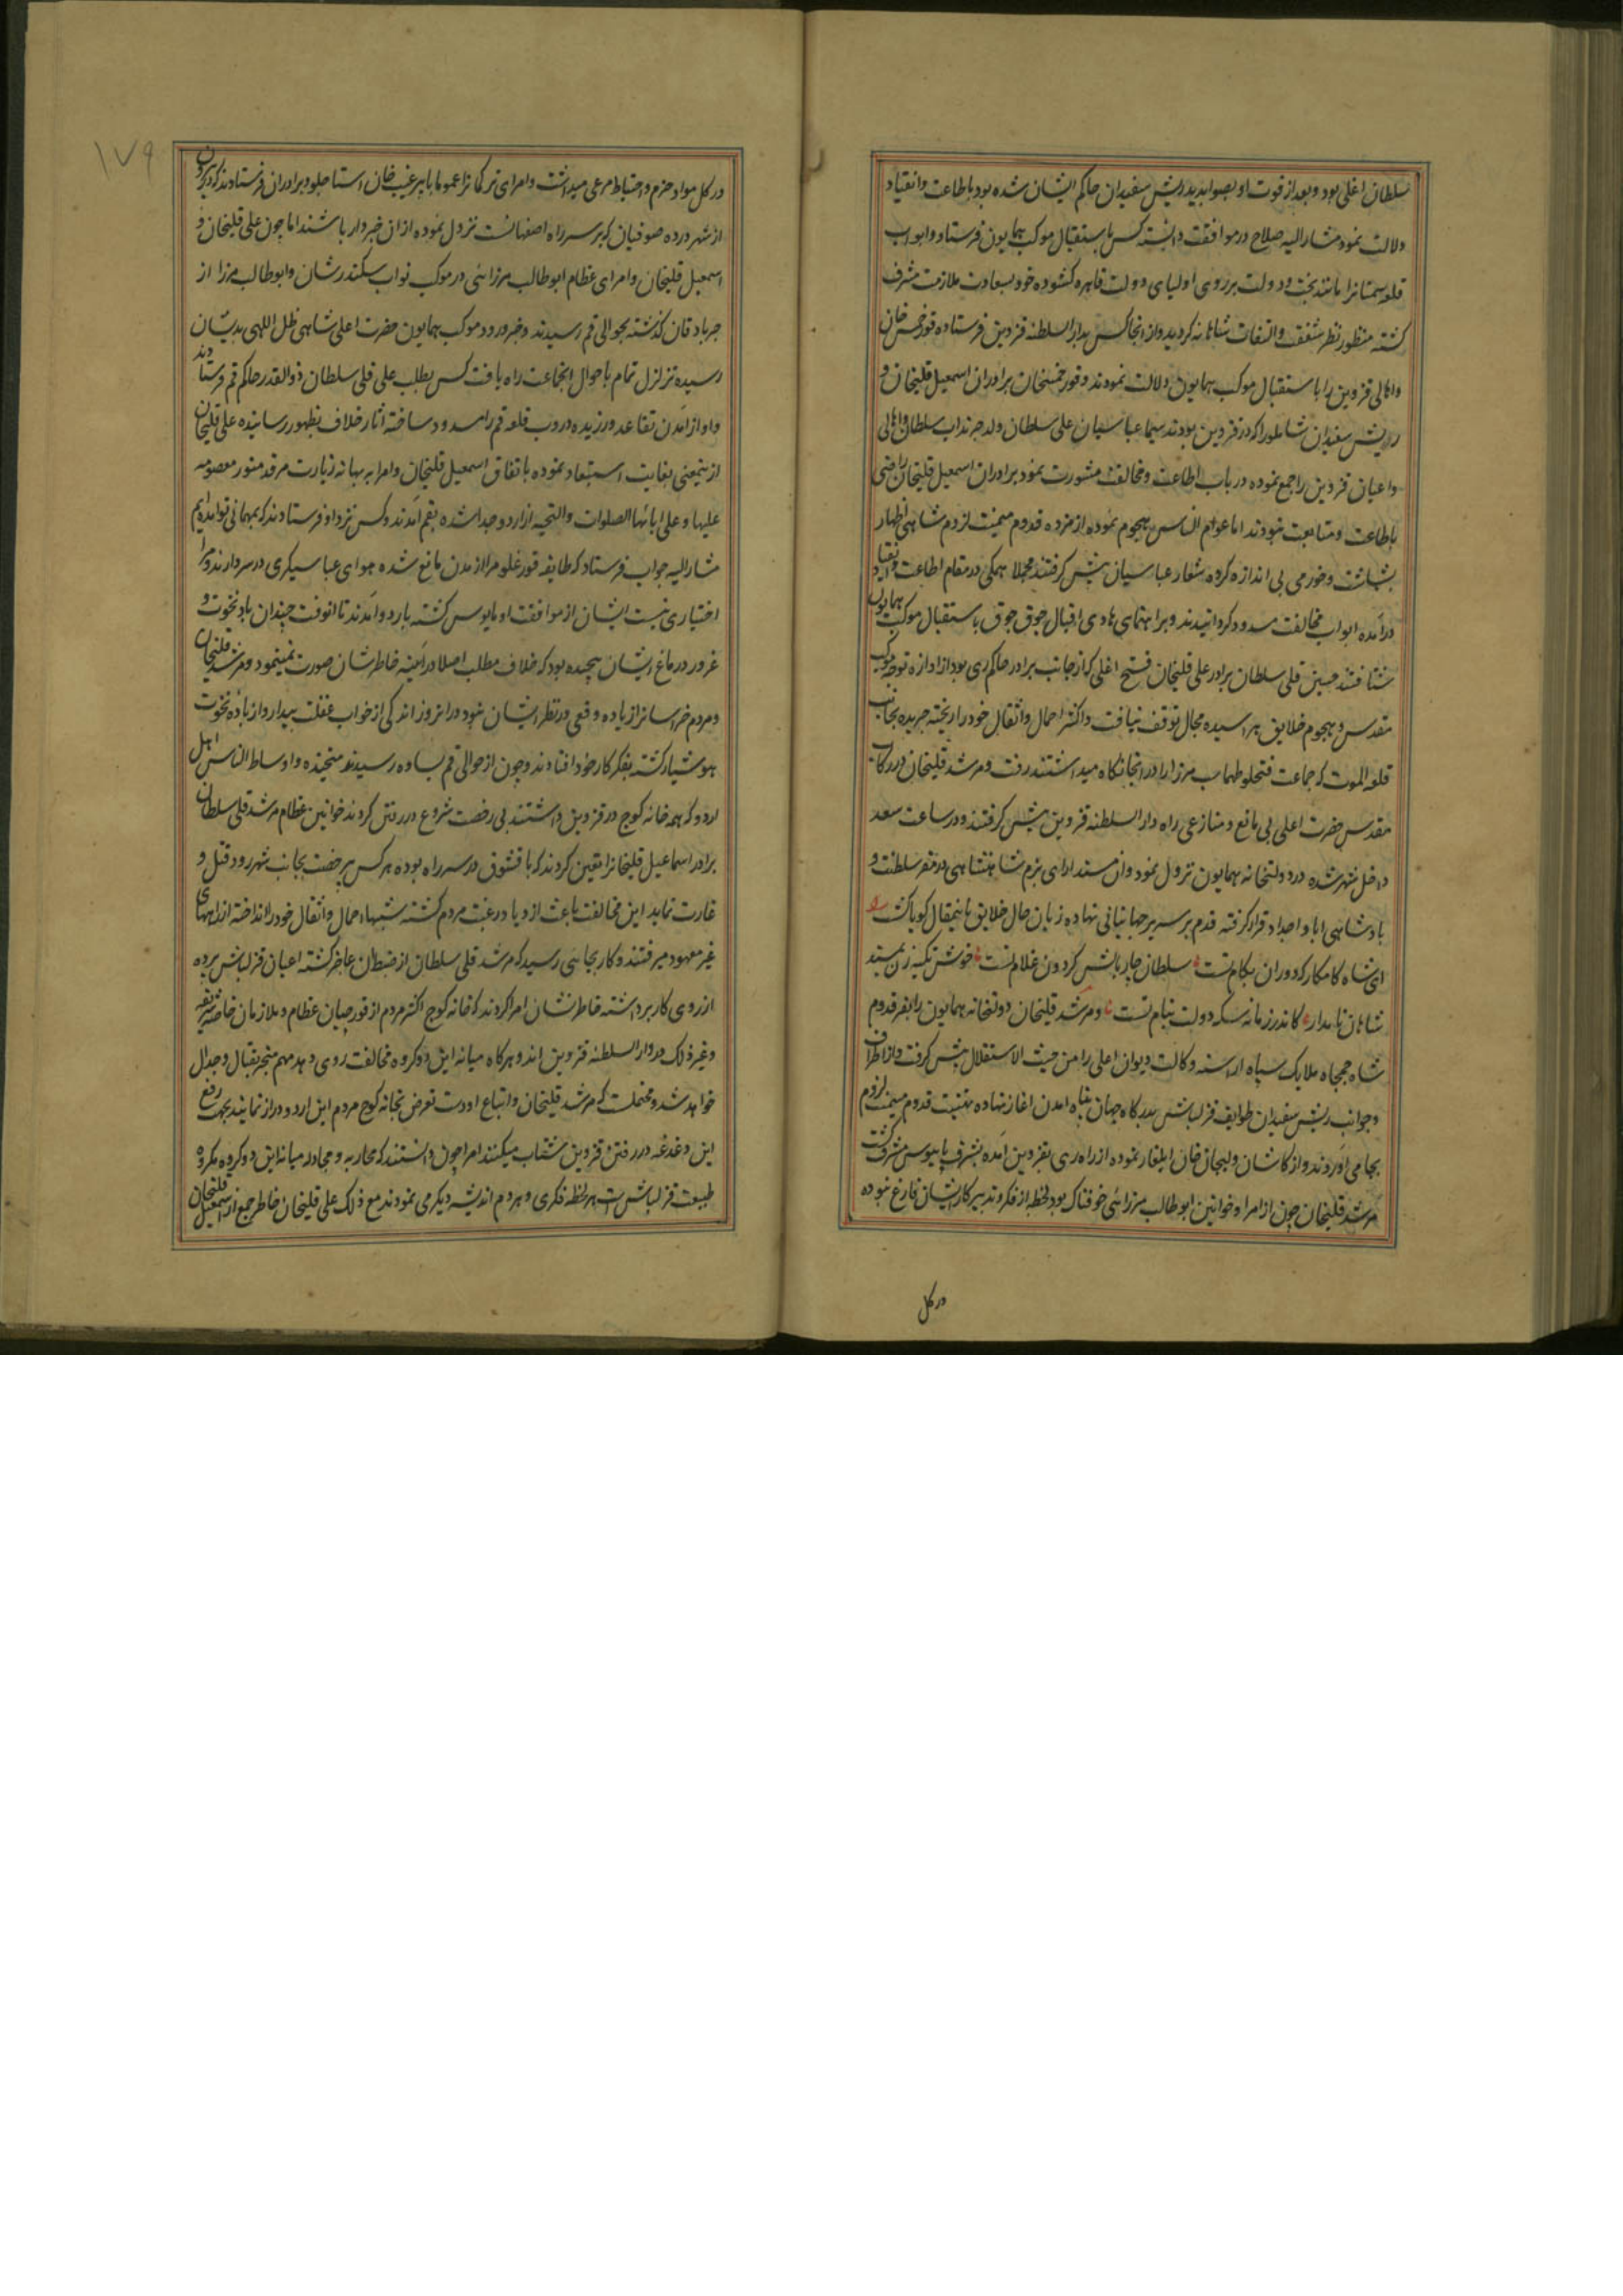 سلطان اغلی بود و بعد از فوت او بصوابدید ریش سفیدان حاکم ایشان شده بود باطاعت و انقیاد
دلالت نمود مشارالیه صلاح در موافقت دانسته کس باستقبال موکب همایون فرستاد و ابواب
قلعه سمنانرا مانند بخت و دولت بر روی اولیای دولت قاهره کشوده خود بسعادت ملازمت مشرف
کشته منظور نظر شفقت و التفات شاهانه کردید و از انجا کس بدار السلطنه قزوین فرستاده قورخمس خان
و اهالی قزوین را باستقبال موکب همایون دلالت نمودند و قورخمسخان برادران اسمعیل قلیخان و
ریش سفیدان شاملو را که در قزوین بودند سیما عباسیان علی سلطان ولد چرنداب سلطان و اهالی
و اعیان قزوین را جمع نموده در باب اطاعت و مخالفت مشورت نمود برادران اسمعیل قلیخان راضی
باطاعت و متابعت نبودند اما عوام الناس هجوم نموده از مژده قدوم میمنت لزوم شاهی اظهار
بشاشت و خورمی بی اندازه کرده شعار عباسیان پیش کرفتند مجملا همکی در مقام اطاعت و انقیاد
درآمده ابواب مخالفت مسدود کردانیدند و براهنمای هادی اقبال جوق جوق باستقبال موکب همایون
شتافتند حسین قلی سلطان برادر علی قلیخان فتح اغلی که از جانب برادر حاکم ری بود از اوازه توجه موکب
مقدس و هجوم خلایق هراسیده مجال توقف نیافت و اکثر احمال و اثقال خود را ریخته جریده بجانب
قلعه الموت که جماعت فتحلو طهماسب میرزا را در انجا نکاه میداشتند رفت و مرشد قلیخان در رکاب
مقدس حضرت اعلی بی مانع و منازعی راه دار السلطنه قزوین پیش کرفتند و در ساعت سعد
داخل شهر شده در دولتخانه همایون نزول نمود و ان مسند ارای بزم شاهنشاهی در مقر سلطنت و
بادشاهی ابا و اجداد قرار کرفته قدم بر سریر جهانبانی نهاده زبان حال خلایق باینمقال کویا کشت
ای شاه کامکار که دوران بکام تست سلطان چار بالش کردون غلام تست خوش تکیه زن بمسند
شاهان نامدار کاندر زمانه سکه دولت بنام تست و مرشد قلیخان دولتخانه همایون را بفر قدوم
شاه جمجاه ملایک سپاه اراسته وکالت دیوان اعلی را من حیث الاستقلال پیش کرفت و از اطراف
و جوانب ریش سفیدان طوایف قزلباش بدرکاه جهان پناه امدن اغاز نهاده تهنیت قدوم میمنت لزوم
بجا می آوردند و از کاشان ولیجان خان ایلغار نموده از راه ری بقزوین آمده بشرف پابوس مشرف کشت
مرشد قلیخان چون از امرا و خوانین ابوطالب میرزائی خوفناک بود لحظه از فکر و تدبیر کار ایشان فارغ نبوده
در کل
۱۷۹
در کل مواد حزم و احتیاط مرعی میداشت و امرای ترکمانرا عموما با پیر غیب خان استاجلو و برادران فرستادند که در بیرون
از شهر در ده صوفیان که بر سر راه اصفهانست نزول نموده از ان خبردار باشند اما چون علی قلیخان و
اسمعیل قلیخان و امرای عظام ابوطالب میرزائی در موکب نواب سکندرشان و ابوطالب میرزا از
جربادقان کذشته بحوالی قم رسیدند و خبر ورود موکب همایون حضرت اعلی شاهی ظل اللهی بدیشان
رسیده تزلزل تمام باحوال انجماعت راه یافت کس بطلب علی قلی سلطان ذوالقدر حاکم قم فرستادند
و او از آمدن تقاعد ورزیده دروب قلعه قم را مسدود ساخته آثار خلاف بظهور رسانیده علی قلیخان
ازینمعنی بغایت استبعاد نموده باتفاق اسمعیل قلیخان و امرا به بهانه زیارت مرقد منور معصومه
علیها و علی ابائها الصلوات و التحیه از اردو جدا شده بقم آمدند و کس نزد او فرستادند که بمهمانی تو آمده‌ایم
مشارالیه جواب فرستاد که طایفه قورغلو مرا از مدن مانع شده هوای عباسیکری در سر دارند و مرا
اختیاری نیست ایشان از موافقت او مایوس کشته باردو آمدند تا انوقت چندان باد نخوت و
غرور در دماغ ایشان پیچیده بود که خلاف مطلب اصلا در آیینه خاطرشان صورت نمینمود و مرشد قلیخان
و مردم خراسانرا زیاده وقعی در نظر ایشان نبود در انروز اندکی از خواب غفلت بیدار و از باده نخوت
هوشیار کشته بفکر کار خود افتادند و چون از حوالی قم بساوه رسیدند متجنده و اوساط الناس اهل
اردو که همه خانه کوچ در قزوین داشتند بی رخصت شروع در رفتن کردند خوانین عظام مرشد قلی سلطان
برادر اسماعیل قلیخانرا تعین کردند که با قشون در سر راه بوده هر کس بیرخصت بجانب شهر رود قتل و
غارت نماید این مخالفت باعث ازدیاد رغبت مردم کشته شبها احمال و اثقال خود را انداخته از راههای
غیر معهود میرفتند و کار بجائی رسید که مرشد قلی سلطان از ضبط ان عاجز کشته اعیان قزلباش پرده
از روی کار برداشته خاطرنشان امرا کردند که خانه کوچ اکثر مردم از قورچیان عظام و ملازمان خاصه شریفه
و غیر ذلک در دار السلطنه قزوین اند و هرکاه میانه این دو کروه مخالفت روی دهد مهم منجر بقتال و جدال
خواهد شد و محتملست که مرشد قلیخان و اتباع او دست تعرض بخانه کوچ مردم این اردو دراز نمایند بجهت رفع
این دغدغه در رفتن قزوین شتاب میکنند امرا چون دانستند که محاربه و مجادله میانه این دو کروه مکروه
طبیعت قزلباش است هر لحظه فکری و هر دم اندیشه دیکر می نمودند مع ذلک علی قلیخان خاطر جمع از اسمعیل قلیخان